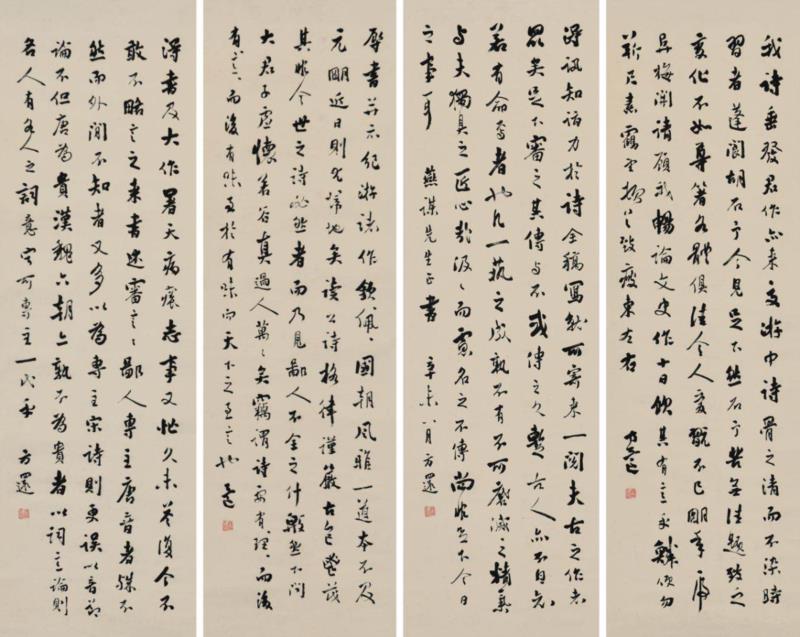 我詩垂發君作亦來交游中詩骨之清而不染時
習者蓬閬胡石予今見足下然石予苦無佳題致之
變化不如尊箸各體俱佳令人愛翫不已明年
梅開請顧我暢論文史作十日飲其有意乎 勿
東左右
方還
得訊知 力於詩全稿寫就可寄來一閱夫古之作者
眾矣足下審之其傳与不或傳之久暫古人亦不自知
若有命焉者也凡一藝之成孰不有不可磨滅之精氣
与夫獨具之匠心歟汲汲而 名之不傳尚非足下今日
之事耳 燕謀先生正書 辛未八月方還
辱書并示紀游諸作欽佩國朝風雅一道本不及
元明近日則尤掃地矣讀公詩格律謹嚴古色
其非今世之詩必然者而乃見鄙人不全之什殷然下問
大君子虛懷若谷真過人萬萬矣竊謂詩必有理而後
有言而後有味至於有味而天下之至言也 還
得書及大作署天病 志事又忙久未答復今不
敢不略言之來書述審言言鄙人專主唐音者殊不
然而外間不知者又多以為專主宋詩則更誤以音節
論不但唐為貴漢魏六朝亦孰不為貴者以詞意論則
各人有各人之詞意安可專主一代乎 方還